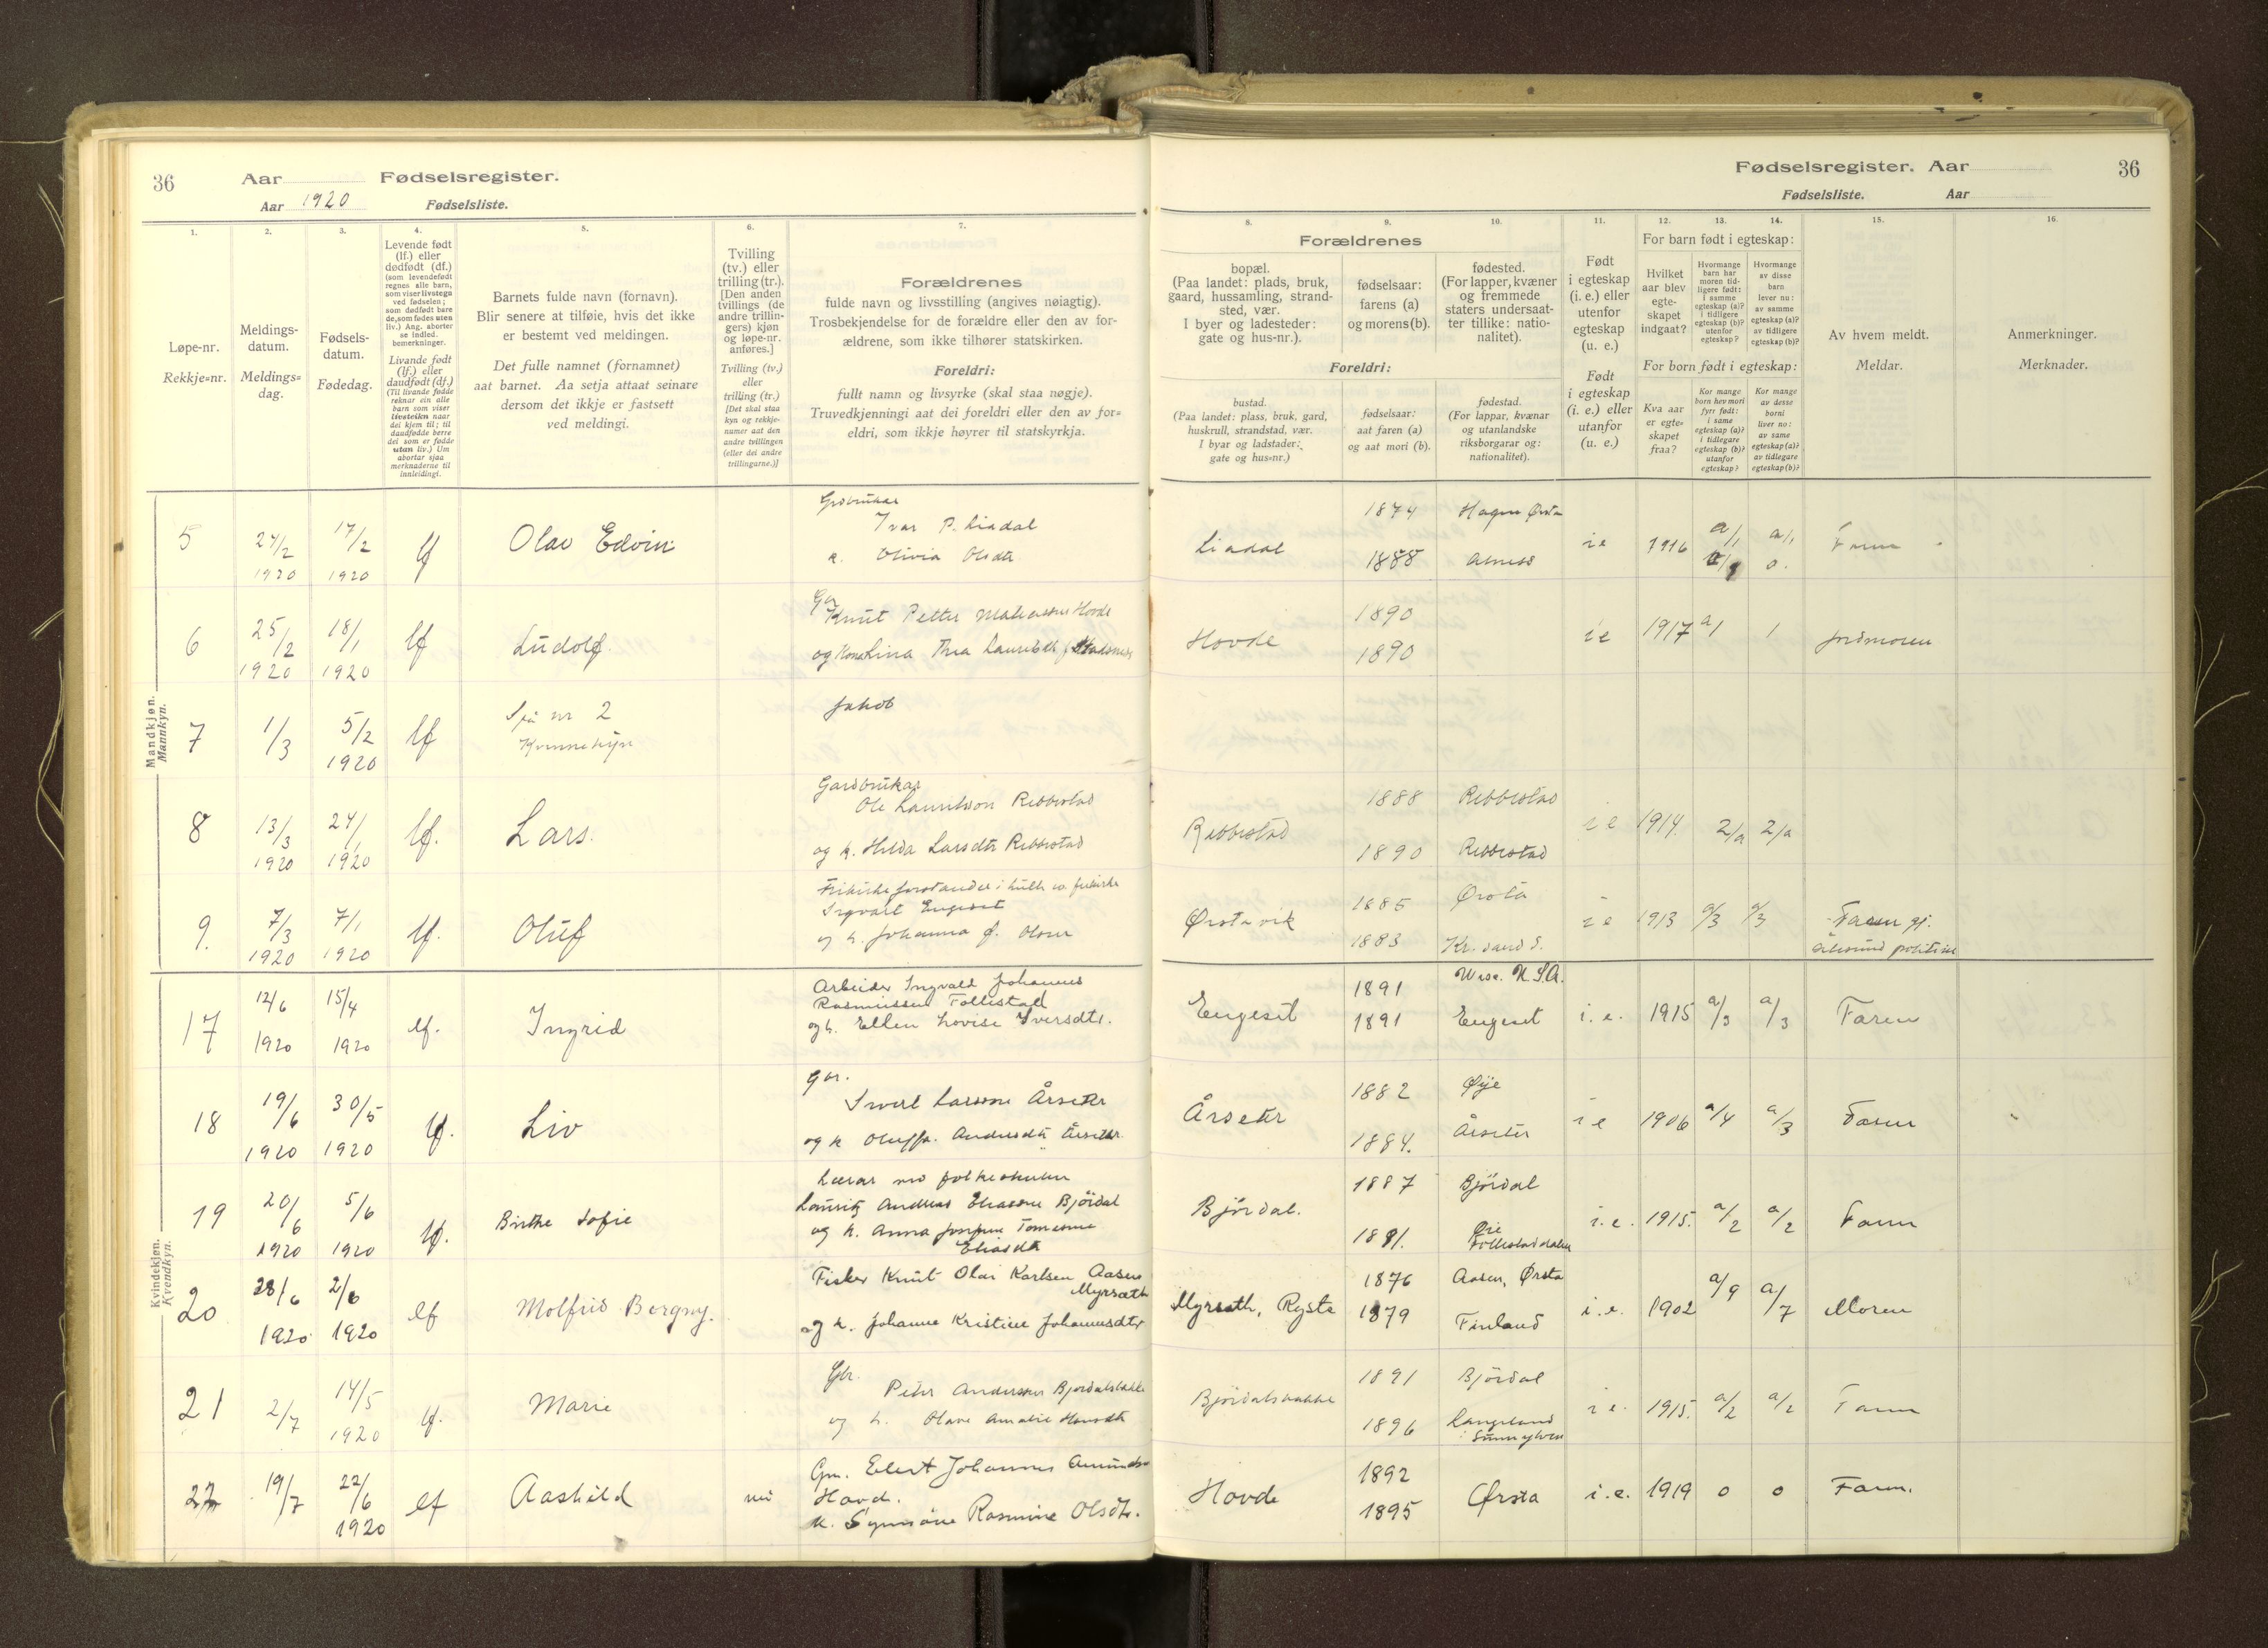 36 Aar Fødselsregister.
Aar 1920 Fødselsliste.
1. 2. 3. 4. 5. 6. 7.
Løpe-nr.
Rekkje=nr.
Meldings-
datum.
Meldings=
dag.
Fødsels-
datum.
Fødedag.
Levende født
(lf.) eller
dødfødt (df.)
(som levendefødt
regnes alle barn,
som viser livstegn
ved fødselen;
som dødfødt bare
de, som fødes uten
liv.) Ang. aborter
se indled.
bemerkninger.
Livande født
(lf.) eller
daudfødt (df.)
(Til livande fødde
reknar ein alle
barn som viser
livsteikn naar
dei kjem til; til
daudfødde berre
dei som er fødde
utan liv.) Um
abortar sjaa
merknaderne til
innleidingi.
Barnets fulde navn (fornavn).
Blir senere at tilføie, hvis det ikke
er bestemt ved meldingen.
Det fulle namnet (fornamnet)
aat barnet. Aa setja attaat seinare
dersom det ikkje er fastsett
ved meldingi.
Tvilling
(tv.) eller
trilling (tr.).
[Den anden
tvillings (de
andre trillin-
gers) kjøn
og løpe-nr.
anføres.]
Tvilling (tv.)
eller
trilling (tr.)
[Det skal staa
kyn og rekkje-
numer aat den
andre tvillingen
(eller dei andre
trillingarne.)]
Forældrenes
fulde navn og livsstilling (angives nøiagtig).
Trosbekjendelse for de forældre eller den av for-
ældrene, som ikke tilhører statskirken.
Foreldri:
fullt namn og livsyrke (skal staa nøgje).
Truvedkjenningi aat dei foreldri eller den av for=
eldri, som ikkje høyrer til statskyrkja.
Fødselsregister. Aar 36
Fødselsliste. Aar
8. 9. 10. 11. 12. 13. 14. 15. 16.
Forældrenes
bopæl.
(Paa landet: plads, bruk,
gaard, hussamling, strand-
sted, vær.
I byer og ladesteder:
gate og hus-nr.).
fødselsaar:
farens (a)
og morens (b).
fødested.
(For lapper, kvæner
og fremmede
staters undersaat-
ter tillike: natio-
nalitet).
Foreldri:
bustad.
(Paa landet: plass, bruk, gard,
huskrull, strandstad, vær.
I byar og ladstader:
gate og hus=nr.)
fødselsaar:
aat faren (a)
og aat mori (b).
fødestad.
(For lappar, kvænar
og utanlandske
riksborgarar og:
nationalitet).
Født
i egteskap
(i. e.) eller
utenfor
egteskap
(u. e.)
Født
i egteskap
(i. e.) eller
utanfor
(u. e.)
For barn født i egteskap:
Hvilket
aar blev
egte-
skapet
indgaat?
Hvormange
barn har
moren tid-
ligere født:
i samme
egteskap (a)?
i tidligere
egteskap (b)?
utenfor
egteskap?
Hvormange
av disse
barn
lever nu:
av samme
egteskap (a)?
av tidligere
egteskap (b)?
For born født i egteskap:
Kva aar
er egte=
skapet
fraa?
Kor mange
born hev mori
fyrr født:
i same
egteskap (a)?
i tidlegare
egteskap (b)?
utanfor
egteskap?
Kor mange
av desse
borni
liver no:
av same
egteskap (a)?
av tidlegare
egteskap (b)?
Av hvem meldt.
Meldar.
Anmerkninger.
Merknader.
Mandkjøn.
Mannkyn.
5 24/2 1920 17/2 1920 lf Olav Edvin
Ivar P. Liadal
k. Olivia Olsdtr
Liadal 1874 1888 i e 1916 a/1 a/1 0. Faren
6 25/2 1920 18/1 1920 lf Ludolf
Gbr Knut Petter Hovde
og Kona Lina Thea
Hovde 1890 1890 i e 1917 a/1 1 jordmoren
7 1/3 5/2 1920 lf Sjå nr 2
Kvinnekyn
Jakob
8 13/3 1920 24/1 1920 lf. Lars.
Gardbrukar
Ole Lauritson Rebbestad
og k. Hilda Larsdtr Rebbestad
Rebbestad 1888 Rebbestad 1890 Rebbestad i e 1914. 2/a 2/a
9. 7/3 1920 7/1 1920 lf. Oluf
Ingvart Engeset
og h. Johanna f. Olsen
Ørstavik 1885 Ørsta 1883 Kr. sand S. i e 1913 a/3 a/3 Faren gj.
Ålesund politikam
Kvindekjøn.
Kvendkyn.
17 12/6 1920 15/4 1920 lf. Ingrid
Arbeider Ingvald Johannes
Rasmussen Follestad
og h. Ellen Lovise Iversdtr.
Engeset 1891 U.S.A. 1891 Engeset i. e. 1915 a/3 a/3 Faren
18 19/6 1920 30/5 1920 lf. Liv
Gbr.
Sivert Larsson Årseter
og k Andersdtr Årseter
Årseter 1882 Øye 1884. Årseter i e 1906 a/4 a/3 Faren
19 20/6 1920 5/6 1920 lf. Birthe Sofie
Lærar ved folkeskulen
Lauritz Andreas Eliassen Björdal
og k. Anna Josefine
Eliasdtr
Björdal. 1887 Björdal Øie
Follestaddalen i. e. 1915. a/2 a/2 Faren
20 28/6 1920 2/6 1920 lf Molfrid Borgny.
Fisker Knut Olai Karlsen Aasen
Myrsæth
og k. Johanne Kristine Johannesdtr
Myrsæth, Ryste 1876 Aasen, Ørsta 1879 Finland i. e. 1902 a/9 a/7 Moren
21 2/7 14/5 1920 lf. Marie
Gbr.
Peter Anderssen Bjørdalsbakke
og h. Olave Amalie Hansdtr
Björdalsbakke 1891 Björdal 1896 Langeland
i Sunnylven i e. 1915. a/2 a/2 Faren
22 19/7 22/6 1920 lf Aashild
Gm. Elert Johannes
Hovd.
k. Rasmine Olsdtr.
Hovde 1892 1895 Ørsta i. e. 1919 0 0 Faren.